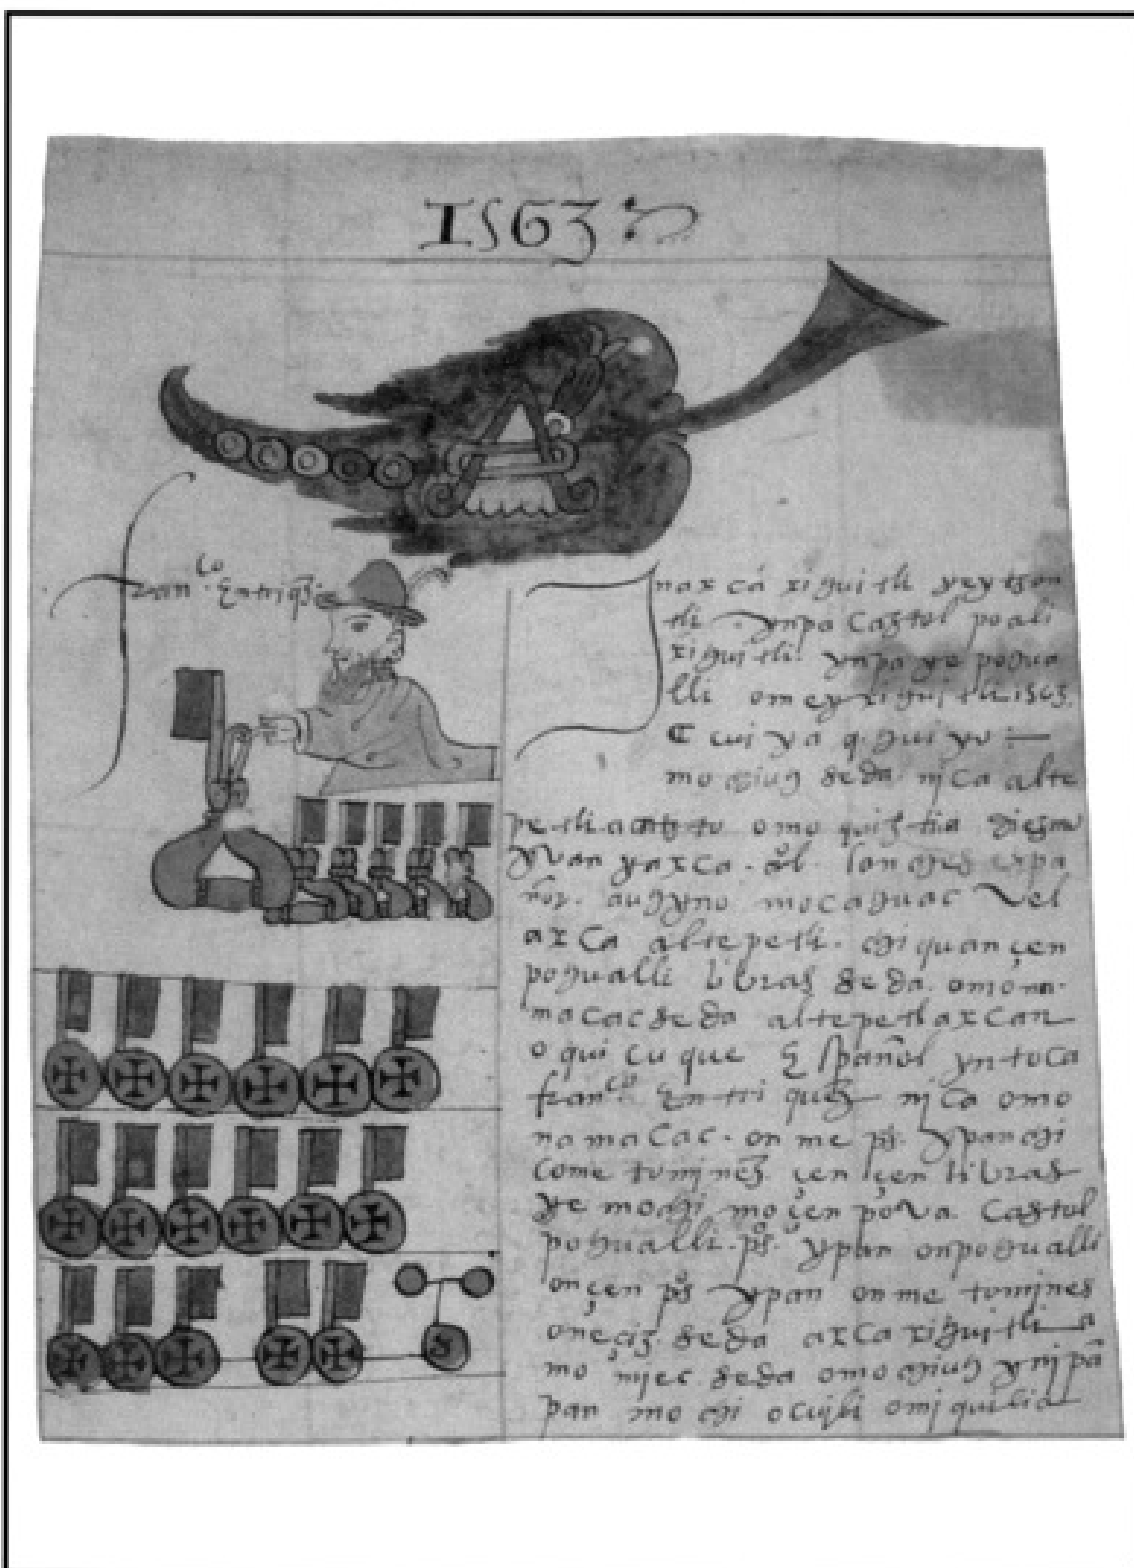 1563
Franco Entriqz
naxcā xiguitli yeytzon
tli ynpa Caxtol poali
xiguitli ynpa ye pogua
lli omey xiguitli
cuiya q. guiyo
mochiuh seda nica alte
petli omo quix tia
yvan yaxca españ
nor. auhyno mocaguac vel
axca altepetli. chiquançen
pogualli libras seda. omona-
macac seda altepetl axcan
o qui cu que Español yntoca
franco Entriquez nica omo
namacac. on me ps. ypan chi
come tomines. çen çen libras
ye mochi moçenpova. Caxtol
pogualli. ps. ypan onpogualli
onçen ps ypan on me tomines
oneçiz. seda axca xiguitli a
mo miec seda omochiuh ynipā
pan mochi ocuili omiquilia